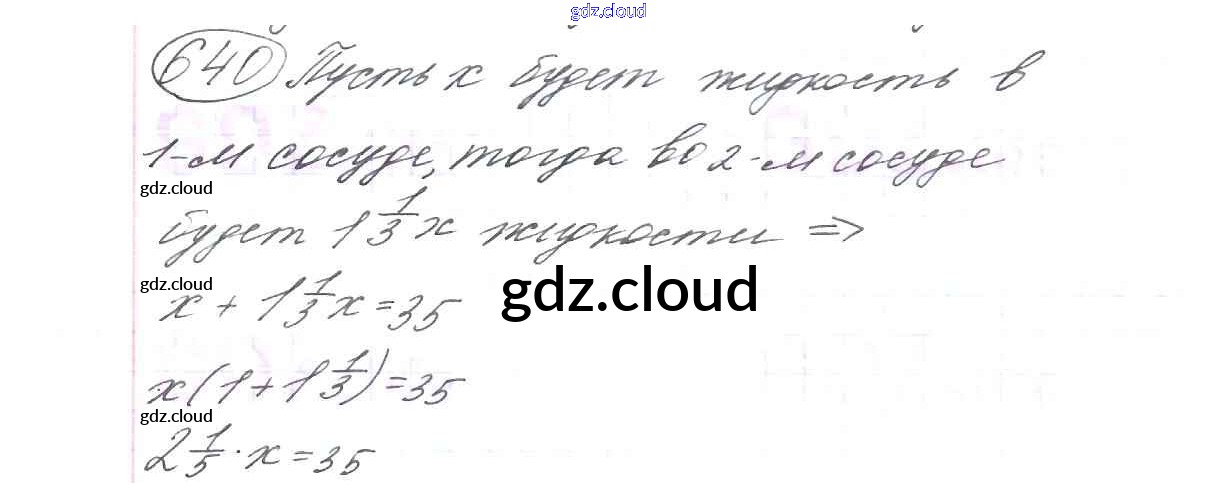 gdz.cloud
640 Пусть x будет жидкость в
1-м сосуде, тогда во 2-м сосуде
gdz.cloud
будет 1 1/3 x жидкости ⇒
gdz.cloud
x + 1 1/3 x = 35
gdz.cloud
x(1 + 1 1/3) = 35
gdz.cloud
2 1/5 · x = 35